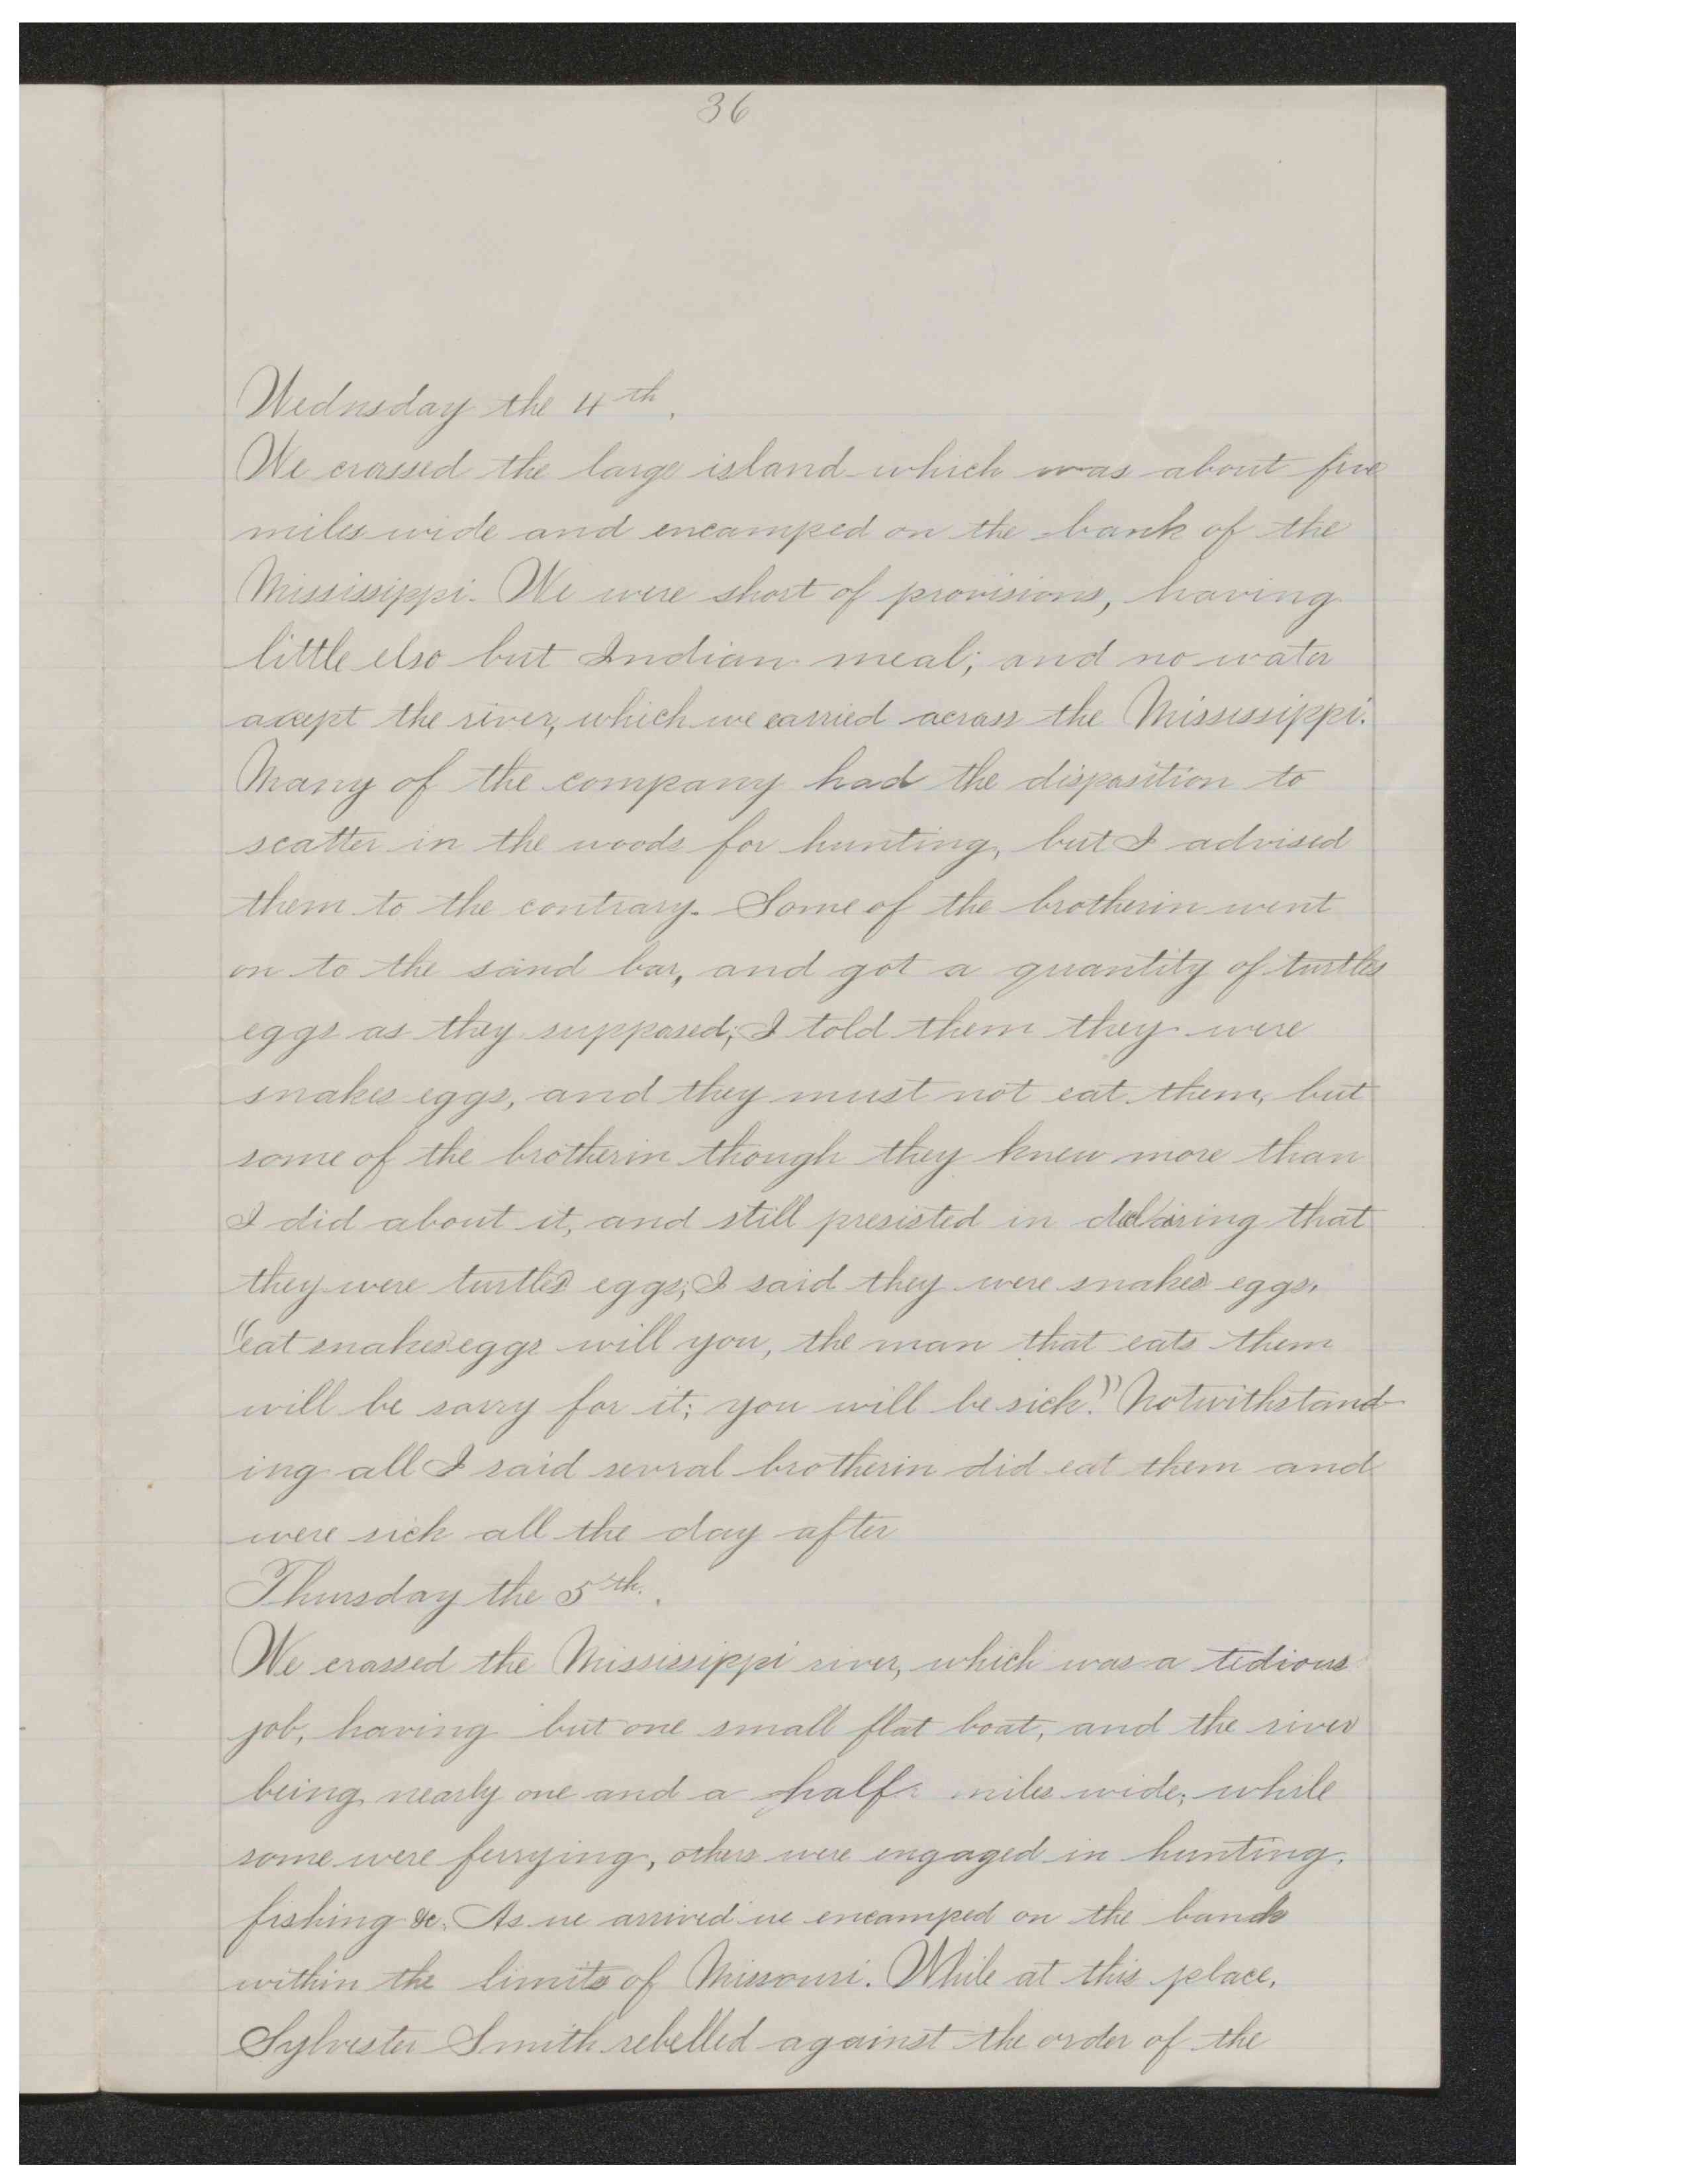 36
Wednsday the 4th.
We crossed the large island which was about five
miles wide and encamped on the bank of the
Mississippi. We were short of provisions, having
little else but Indian meal; and no water
axept the river, which we carried across the Mississippi.
Many of the company had the disposition to
scatter in the woods for hunting, but I advised
them to the contrary. Some of the brotherin went
on to the sand bar, and got a quantity of turtles
eggs as they supposed; I told them they were
snakes eggs, and they must not eat them, but
some of the brotherin though they knew more than
I did about it, and still presisted in declairing that
they were turtles eggs; I said they were snakes eggs,
"eat snakes eggs will you, the man that eats them
will be sorry for it; you will be sick!" Notwithstand-
ing all I said sevral brotherin did eat them and
were sick all the day after
Thursday the 5th.
We crossed the Mississippi river, which was a tedious
job, having but one small flat boat, and the river
being nearly one and a half miles wide; while
some were ferrying, others were engaged in hunting,
fishing &c. As we arrived we encamped on the bank
within the limits of Missouri. While at this place,
Sylvester Smith rebelled against the order of the